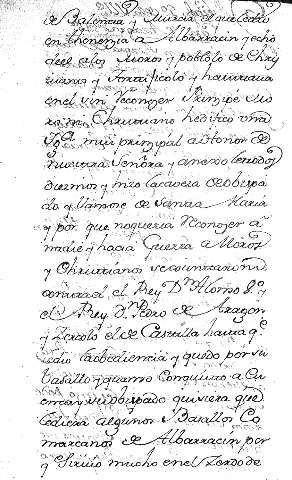 de Valencia y Murcia el qual entro
en thenenzia a Albarracin y echo
de el a los Moros y poblolo de Chris
tianos y fortificolo y havitava
en el sin reconozer Prinzipe Mo
ro ni Christiano hedifico una
Ygª mui prinzipal a honor de
nuestra Señora y anexo le todos
diezmos y hizo Cavesa de obispa
do y llamose de Santa Maria
y por que no queria reconozer a
nadie y hacia Guerra a Moros
y Christianos se
contra el el Rey Dn Alonso 8º y
el Rey Dn Pedro de Aragon
y Zercolo el de Castilla hasta qe
le dio la obediencia y quedo por su
Vasallo y quando Conquisto a Cu
enca su obispado quisiera que
le diera algunos Vasallos Co
marcanos de Albarracin por
q Sirvio mucho en el Zerco de